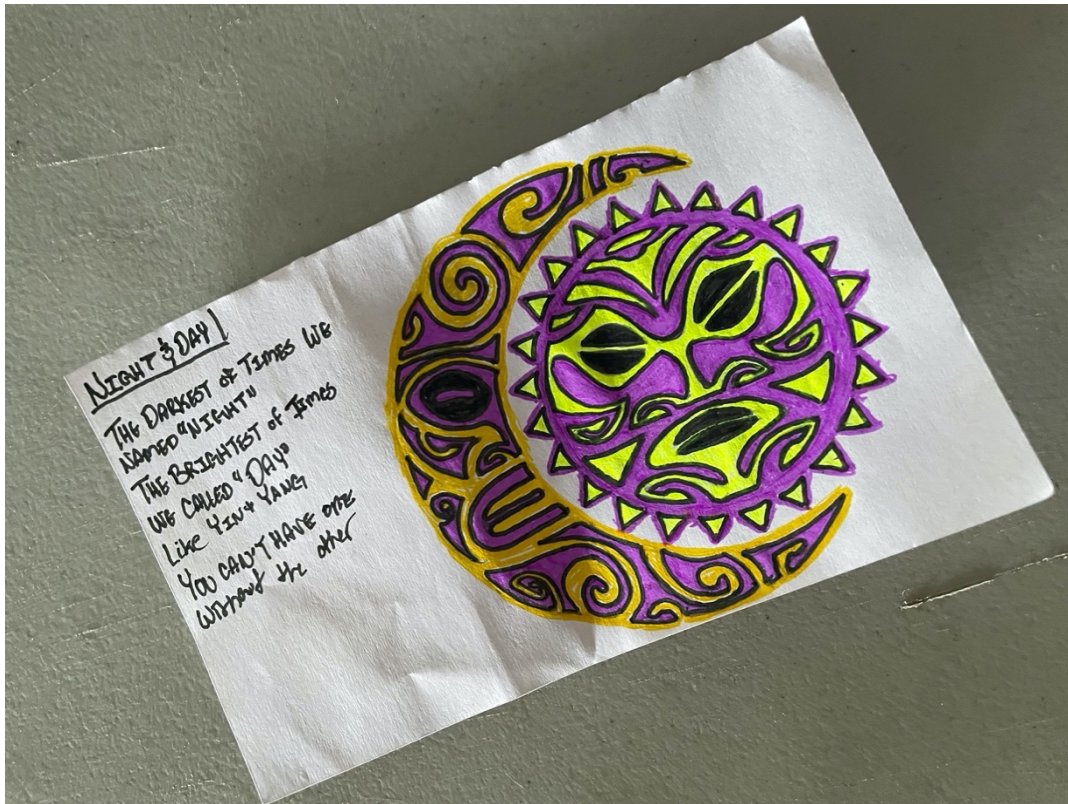 NIGHT & DAY!
THE DARKEST OF TIMES WE
NAMED "NIGHT"
THE BRIGHTEST OF TIMES
WE CALLED "DAY"
LIKE YIN & YANG
YOU CAN'T HAVE ONE
WITHOUT THE OTHER